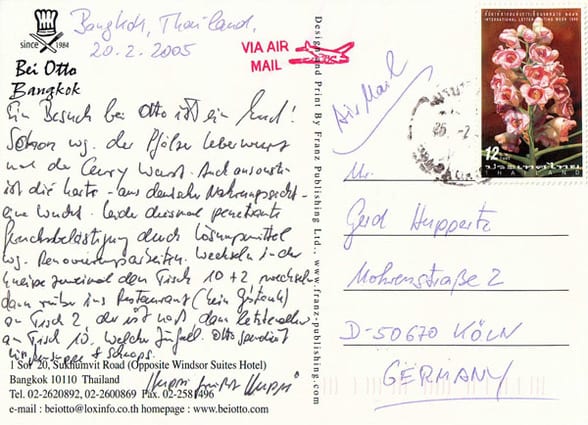 Bangkok, Thailand,
20.2.2005
since 1984
Bei Otto
Bangkok
Ein Besuch bei Otto ist ein Muß!
Schon wg. der Pfälzer Leberwurst
und der Curry Wurst. Auch ansonsten
ist die Karte - aus deutscher Nahrungssicht -
eine Wucht. Leider diesmal penetrante
Geruchsbelästigung durch Lösungsmittel
wg. Renovierungsarbeiten. Wechseln in der
Kneipe zweimal den Tisch 10 + 2, wechseln
dann rüber ins Restaurant (kein Gestank)
an Tisch 2. der ist nah dem
an Tisch 10. Welch Otto spendiert
& Schnaps.
1 Soi 20, Sukhumvit Road (Opposite Windsor Suites Hotel)
Bangkok 10110 Thailand
Tel. 02-2620892, 02-2600869 Fax. 02-2581496
e-mail : beiotto@loxinfo.co.th homepage : www.beiotto.com
Design and Print By Franz Publishing Ltd., www.franz-publishing.com
VIA AIR
MAIL
Air Mail
INTERNATIONAL LETTER WRITING WEEK
12
ประเทศไทย
THAILAND
Mr.
Gerd Huppertz
Mohrenstraße 2
D-50670 KÖLN
GERMANY